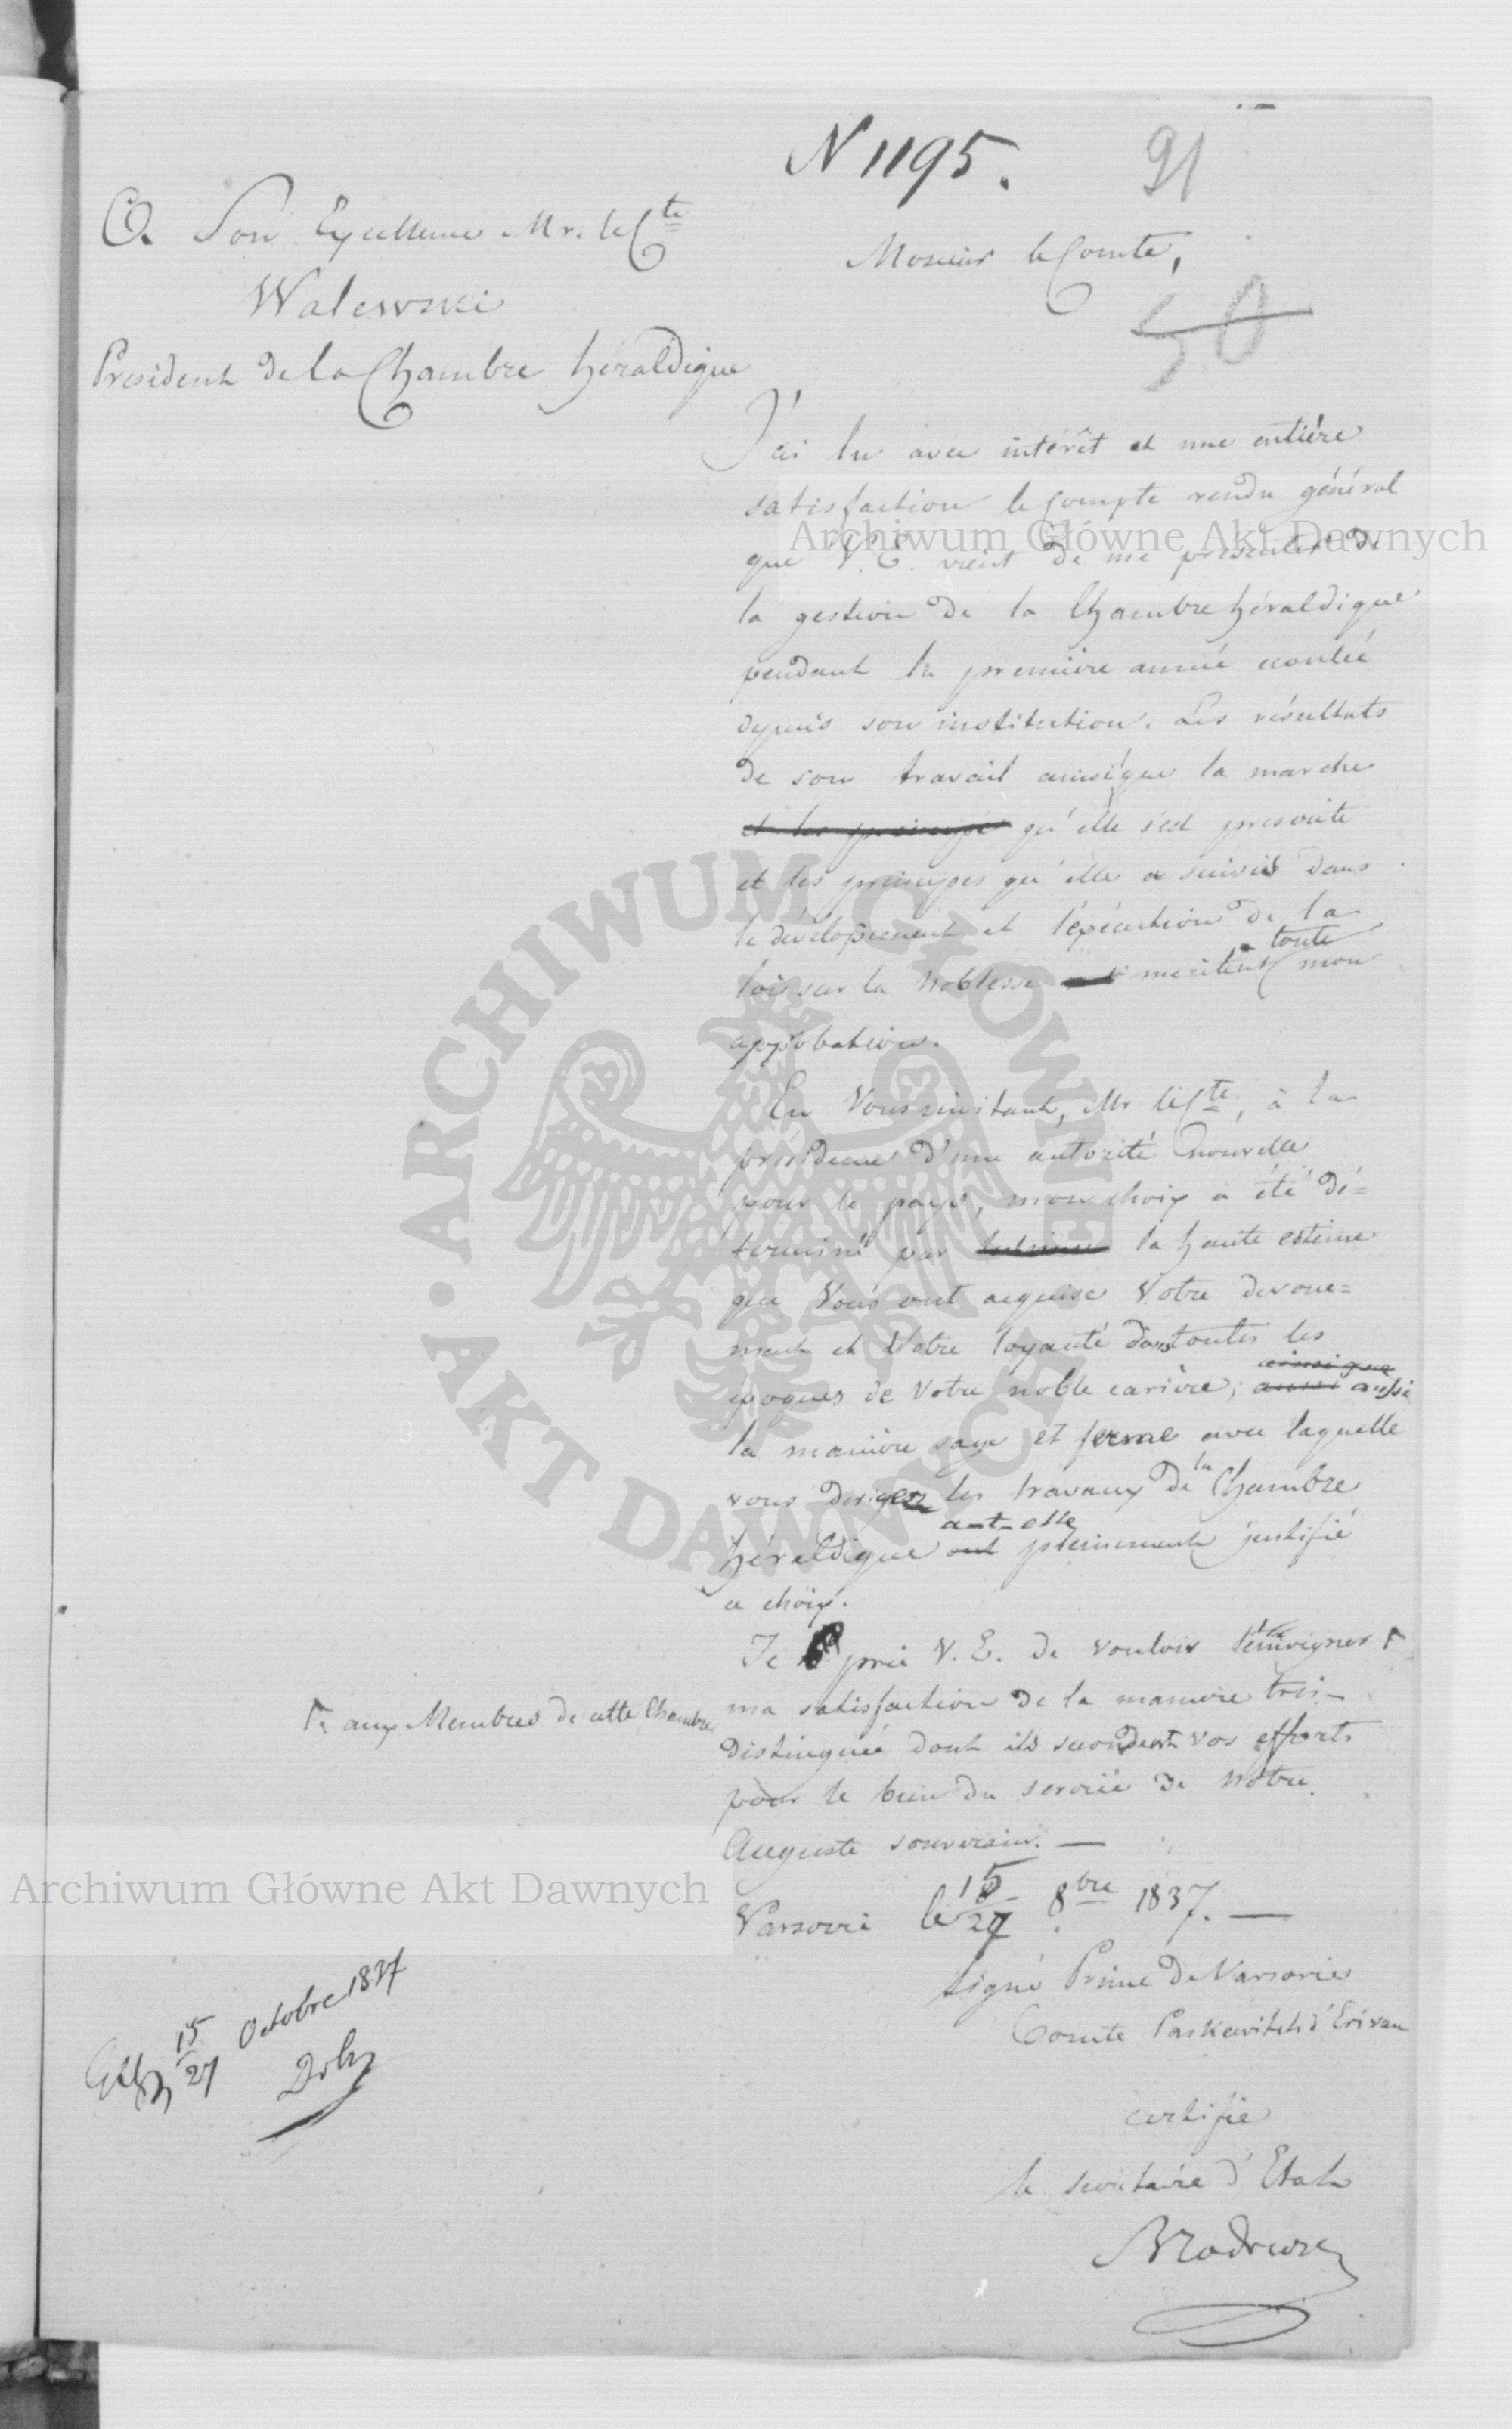 N 1195.
91
A Son Excellence Mr. le Cte
Walewski
Président de la Chambre héraldique
Monsieur le Comte,
50
J'ai lu avec intérêt et une entière
satisfaction le Compte rendu général
que V. E. vient de me présenter de
la gestion de la Chambre héraldique
pendant la première année écoulée
depuis son institution. Les résultats
de son travail ainsi que la marche
et les principes qu'elle s'est prescrite
et les principes qu'elle a suivis dans
le dévelopement et l'exécution de la
loi sur la Noblesse méritent toute mon
approbation.
En Vous invitant, Mr le Cte, à la
présidence d'une autorité nouvelle
pour le pays, mon choix a été dé=
terminé par la haute estime
que Vous ont acquise Votre devoue=
ment et Votre loyauté dans toutes les
époques de Votre noble carière; ainsi que aussi aussi
la manière sage et ferme avec laquelle
vous dirigez les travaux de la Chambre
héraldique ont a-t-elle pleinement justifié
ce choix.
Je prie V. E. de vouloir témoigner
aux Membres de cette Chambre
ma satisfaction de la manière très-
distinguée dont ils secondent vos efforts
pour le bien du service de Notre
Auguste souverain. —
Varsovie le 15/27 8bre 1837. —
signé Prince de Varsovie
Comte Paskewitch d'Erivan
certifié
le secrétaire d'Etat
15/27 Octobre 1837
Archiwum Główne Akt Dawnych
Archiwum Główne Akt Dawnych
· ARCHIWUM GŁÓWNE · AKT DAWNYCH